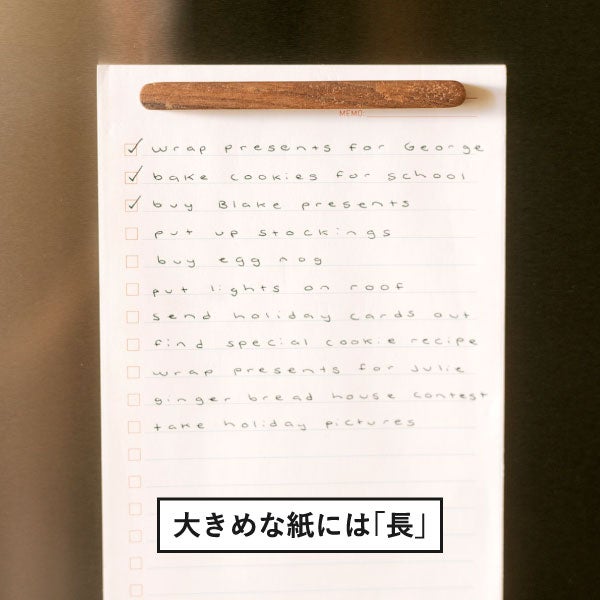 MEMO
wrap presents for George
bake cookies for school
buy Blake presents
put up stockings
buy egg nog
put lights on roof
send holiday cards out
find special cookie recipe
wrap presents for Julie
ginger bread house contest
take holiday pictures
大きめな紙には「長」